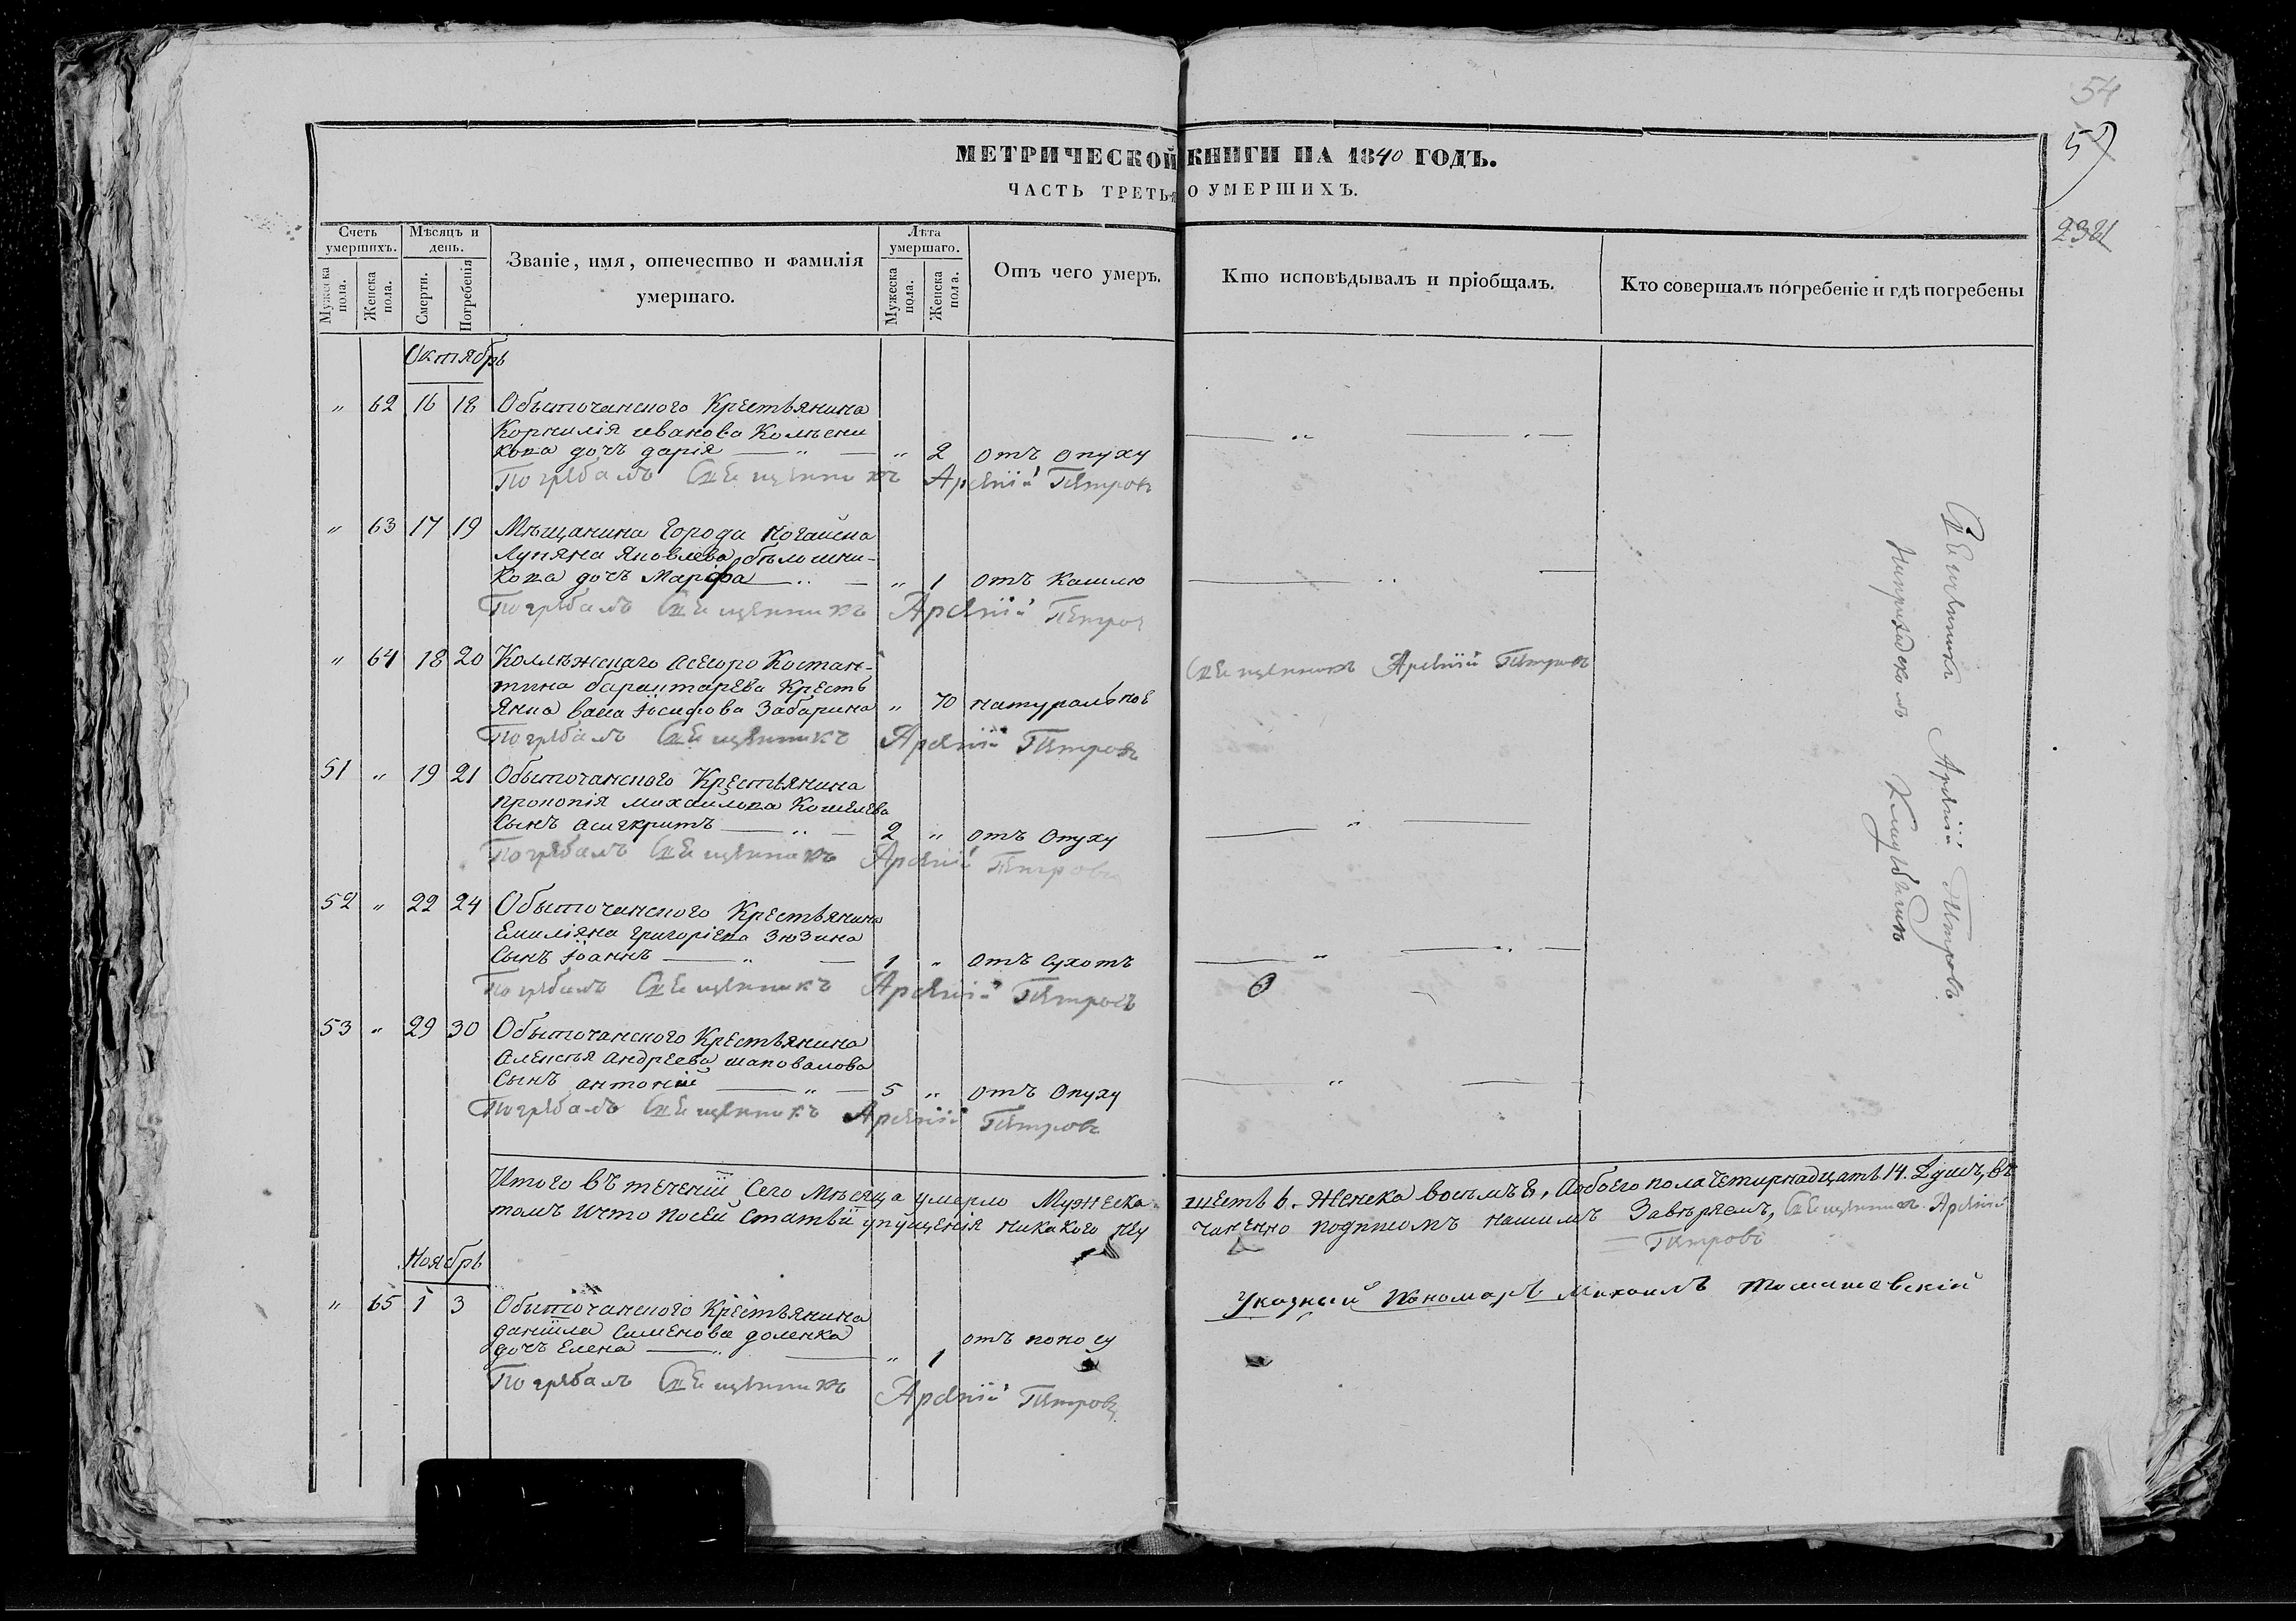 54
МЕТРИЧЕСКОЙ КНИГИ НА 1840 ГОДЪ.
ЧАСТЬ ТРЕТЬЯ О УМЕРШИХЪ.
Счетъ умершихъ.
Мужеска пола.
Женска пола.
Мѣсяцъ и день.
Смерти.
Погребенія
Званіе, имя, отечество и фамилія
умершаго.
Лѣта умершаго.
Мужеска пола.
Женска пола.
Отъ чего умеръ.
Кто исповѣдывалъ и пріобщалъ.
Кто совершалъ погребеніе и гдѣ погребены
Октябрь
" 62 16 18 Обыточанского Крестьянина
Корнилія иванова Колѣсни
кова дочь дарія " 2 отъ опуху
Погребалъ Священникъ Арсеній Петровъ
" 63 17 19 Мѣщанина города Ногайска
Лупяна Яковлева бѣлошни-
кова дочь Марѳа " 1 отъ кашлю
Погребалъ Священникъ Арсеній Петров
" 64 18 20 Коллѣжскаго асесоро Костан-
тина Кресть
янка Іосифова Забарина " 70 натуральное Священникъ Арсеній Петровъ
Погребалъ Священникъ Арсеній Петровъ
51 " 19 21 Обыточанского Крестьянина
прокопія михайлова Кошелева
Сынъ асигкритъ 2 " отъ опуху
Погребалъ Священникъ Арсеній Петровъ
52 " 22 24 Обыточанского Крестьянина
Емиліяна григоріева Зюзина
Сынъ Іоаннъ 1 " отъ сухотъ
Погребалъ Священникъ Арсеній Петровъ
53 " 29 30 Обыточанского Крестьянина
алексѣя андреева шаповалова
Сынъ антоній 5 " отъ опуху
Погребалъ Священникъ Арсеній Петровъ
Священникъ Арсеній Петровъ
Итого въ теченіи сего мѣсяца умерло Мужеска шесть 6. Женска восьмъ 8, Аобоего пола четирнадцать 14. Душъ, въ
томъ ичто посей статьи упущенія никакого неу чиненно подписомъ нашимъ Завѣряемъ, Священникъ Арсеній
Петровъ
Ноябрь
Указный Пономарь Михаилъ Томашевскій
" 65 1 3 Обыточанского Крестьянина
даніила Семенова доленка
дочь Елена " 1 отъ поносу
Погребалъ Священникъ Арсеній Петровъ